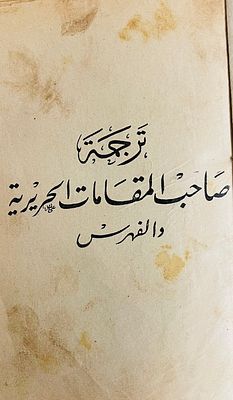 ترجمة
صاحب المقامات الحريرية
والفهرس